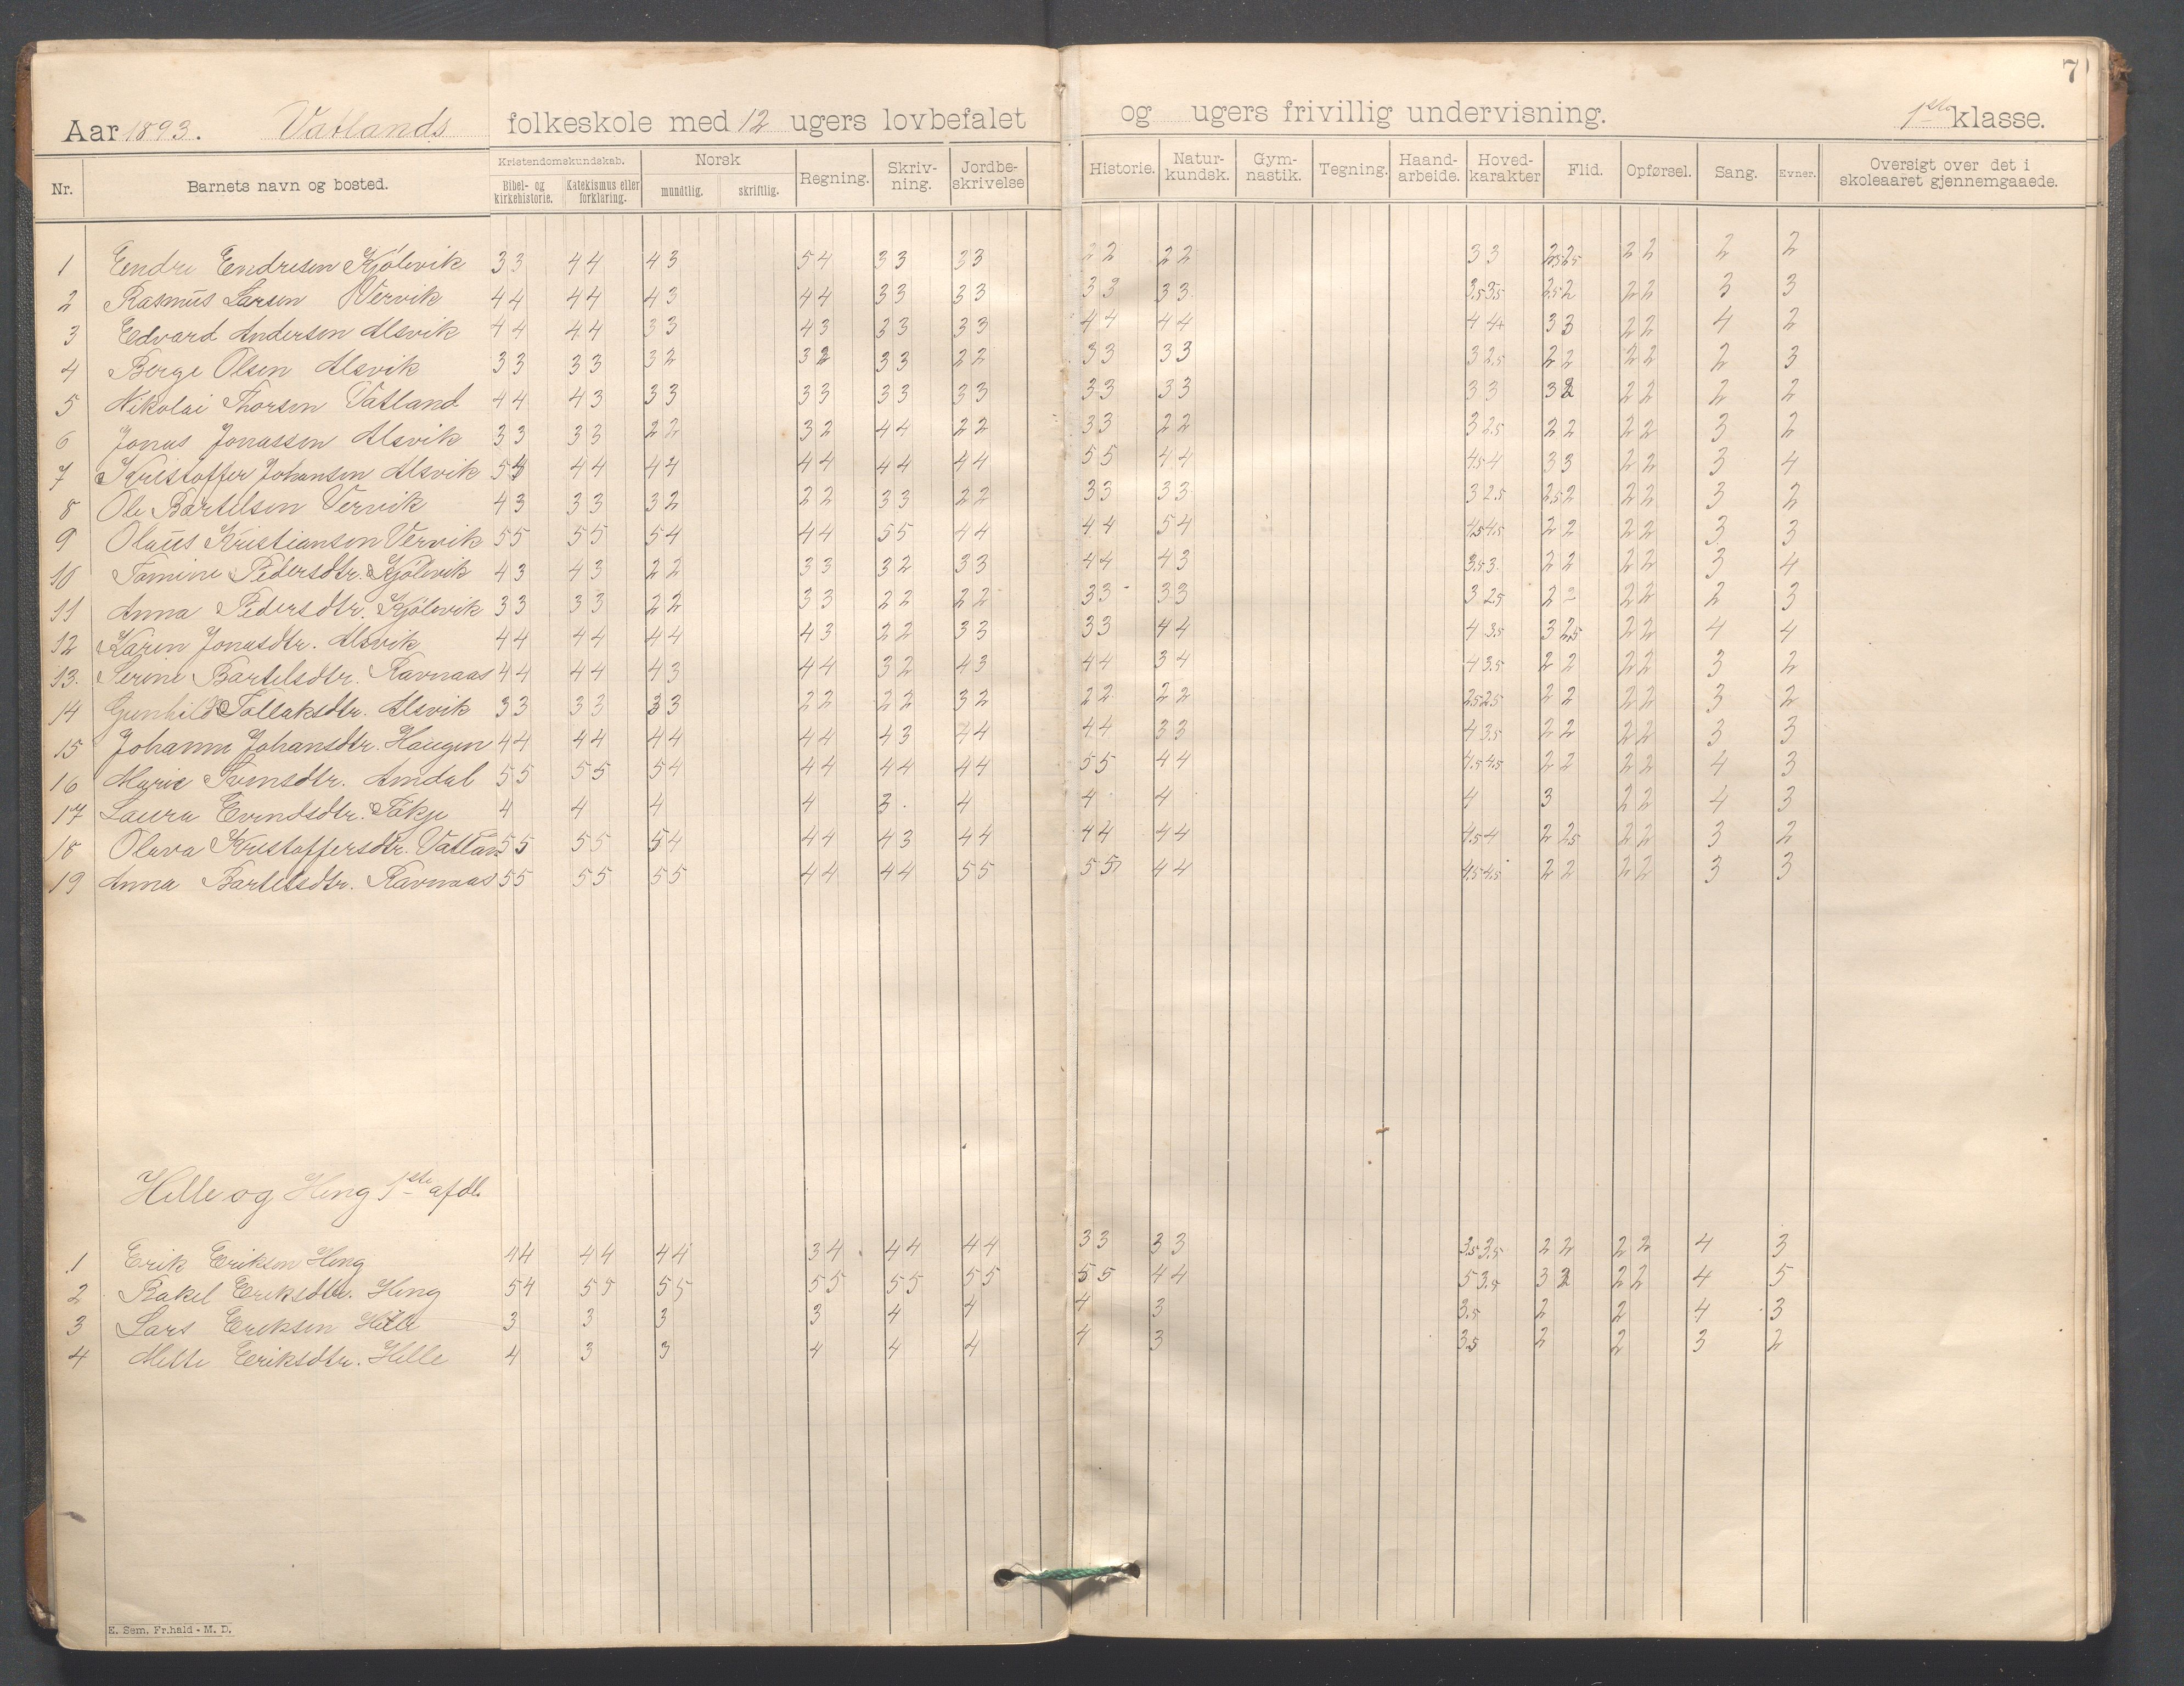 7
Aar 1893. Vatlands folkeskole med 12 ugers lovbefalet og ugers frivillig undervisning. 1ste klasse.
Nr. Barnets navn og bosted. Kristendomskundskab. Bibel- og kirkehistorie. Katekismus eller forklaring. Norsk mundtlig. skriftlig. Regning. Skriv-ning. Jordbe-skrivelse Historie. Natur-kundsk. Gym-nastik. Tegning. Haand-arbeide. Hoved-karakter Flid. Opførsel. Sang. Evner. Oversigt over det i skoleaaret gjennemgaaede.
1 Endre Endresen Kjölevik 33 44 43 54 33 33 22 22 33 2525 22 2 2
2 Rasmus Larsen Vervik 44 44 43 44 33 33 33 33 3.53.5 2.52 22 3 3
3 Edvard Andersen Alsvik 44 44 33 43 33 33 44 44 44 33 22 4 2
4 Berge Olsen Alsvik 33 33 32 32 33 22 33 33 3 2.5 22 22 2 3
5 Nikolai Thorsen Vatland 44 43 33 33 33 33 33 33 33 32 22 2 2
6 Jonas Jonassen Alsvik 33 33 22 32 44 22 33 22 3 2.5 22 22 3 2
7 Kristoffer Johansen Alsvik 54 44 44 44 44 44 55 44 4.54 33 22 3 4
8 Ole Bartelsen Vervik 43 33 32 22 33 22 33 33 3 2.5 2.52 22 3 2
9 Olaus Kristiansen Vervik 55 55 54 44 55 44 44 54 4.54.5 22 22 3 3
10 Tomine Pedersdtr. Kjölevik 43 43 22 33 32 33 44 43 3.53. 22 22 3 4
11 Anna Pedersdtr. Kjölevik 33 33 22 33 22 22 33 33 3 2.5 22 22 2 3
12 Karen Jonasdtr. Alsvik 44 44 44 43 22 33 33 44 4 3.5 3 2.5 22 4 4
13. Serine Bartelsdtr. Ravnaas 44 44 43 44 32 43 44 34 4 3.5 22 22 3 2
14 Gunhild Tollaksdtr. Alsvik 33 33 33 22 22 32 22 22 2.52.5 22 22 3 2
15 Johanne Johansdtr. Haugen 44 44 44 44 43 44 44 33 4 3.5 22 22 3 3
16 Marie Svensdtr. Amdal 55 55 54 44 44 44 55 44 4.54.5 22 22 4 3
17 Laura Evindsdtr. 4 4 4 4 3. 4 4 4 4 3 22 4 3
18 Oleva Kristoffersdtr. Vatlan 55 55 54 44 43 44 44 44 4.54 2 2.5 22 3 2
19 Anna Bartelsdtr. Ravnaas 55 55 55 44 44 55 55 44 4.54.5 22 22 3 3
Hille og Heng 1ste afdl.
1 Erik Eriksen Heng 44 44 44 34 44 44 33 33 3.53.5 22 22 4 3
2 Rakel Eriksdtr. Heng 54 55 55 55 55 55 55 44 53.5 32 22 4 5
3 Lars Eriksen Hille 3 3 3 3 4 4 4 3 3.5 2 2 4 3
4 Mette Eriksdtr. Hille 4 3 3 4 4 4 4 3 3.5 2 2 3 2
E. Sem. Fr.hald - M. D.